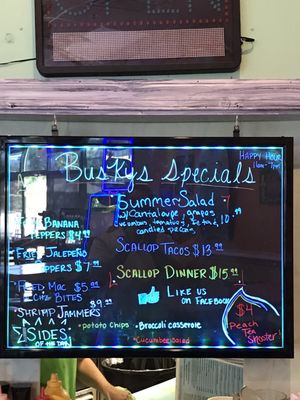 Busky's Specials
HAPPY HOUR
Summer Salad
w/ Cantaloupe, grapes
cucumber, tomatoes, feta, 10.99
candied pecan
Banana
Peppers $4.99
Fried Jalapeño
Poppers $7.99
Fried Mac $5.99
& Chz Bites
Shrimp Jammers 9.99
Scallop Tacos $13.99
Scallop Dinner $15.99
Like us
on Facebook
$4
Peach
Tea
Shooter!
Sides
of the Day
•potato chips •Broccoli casserole
•Cucumber Salad